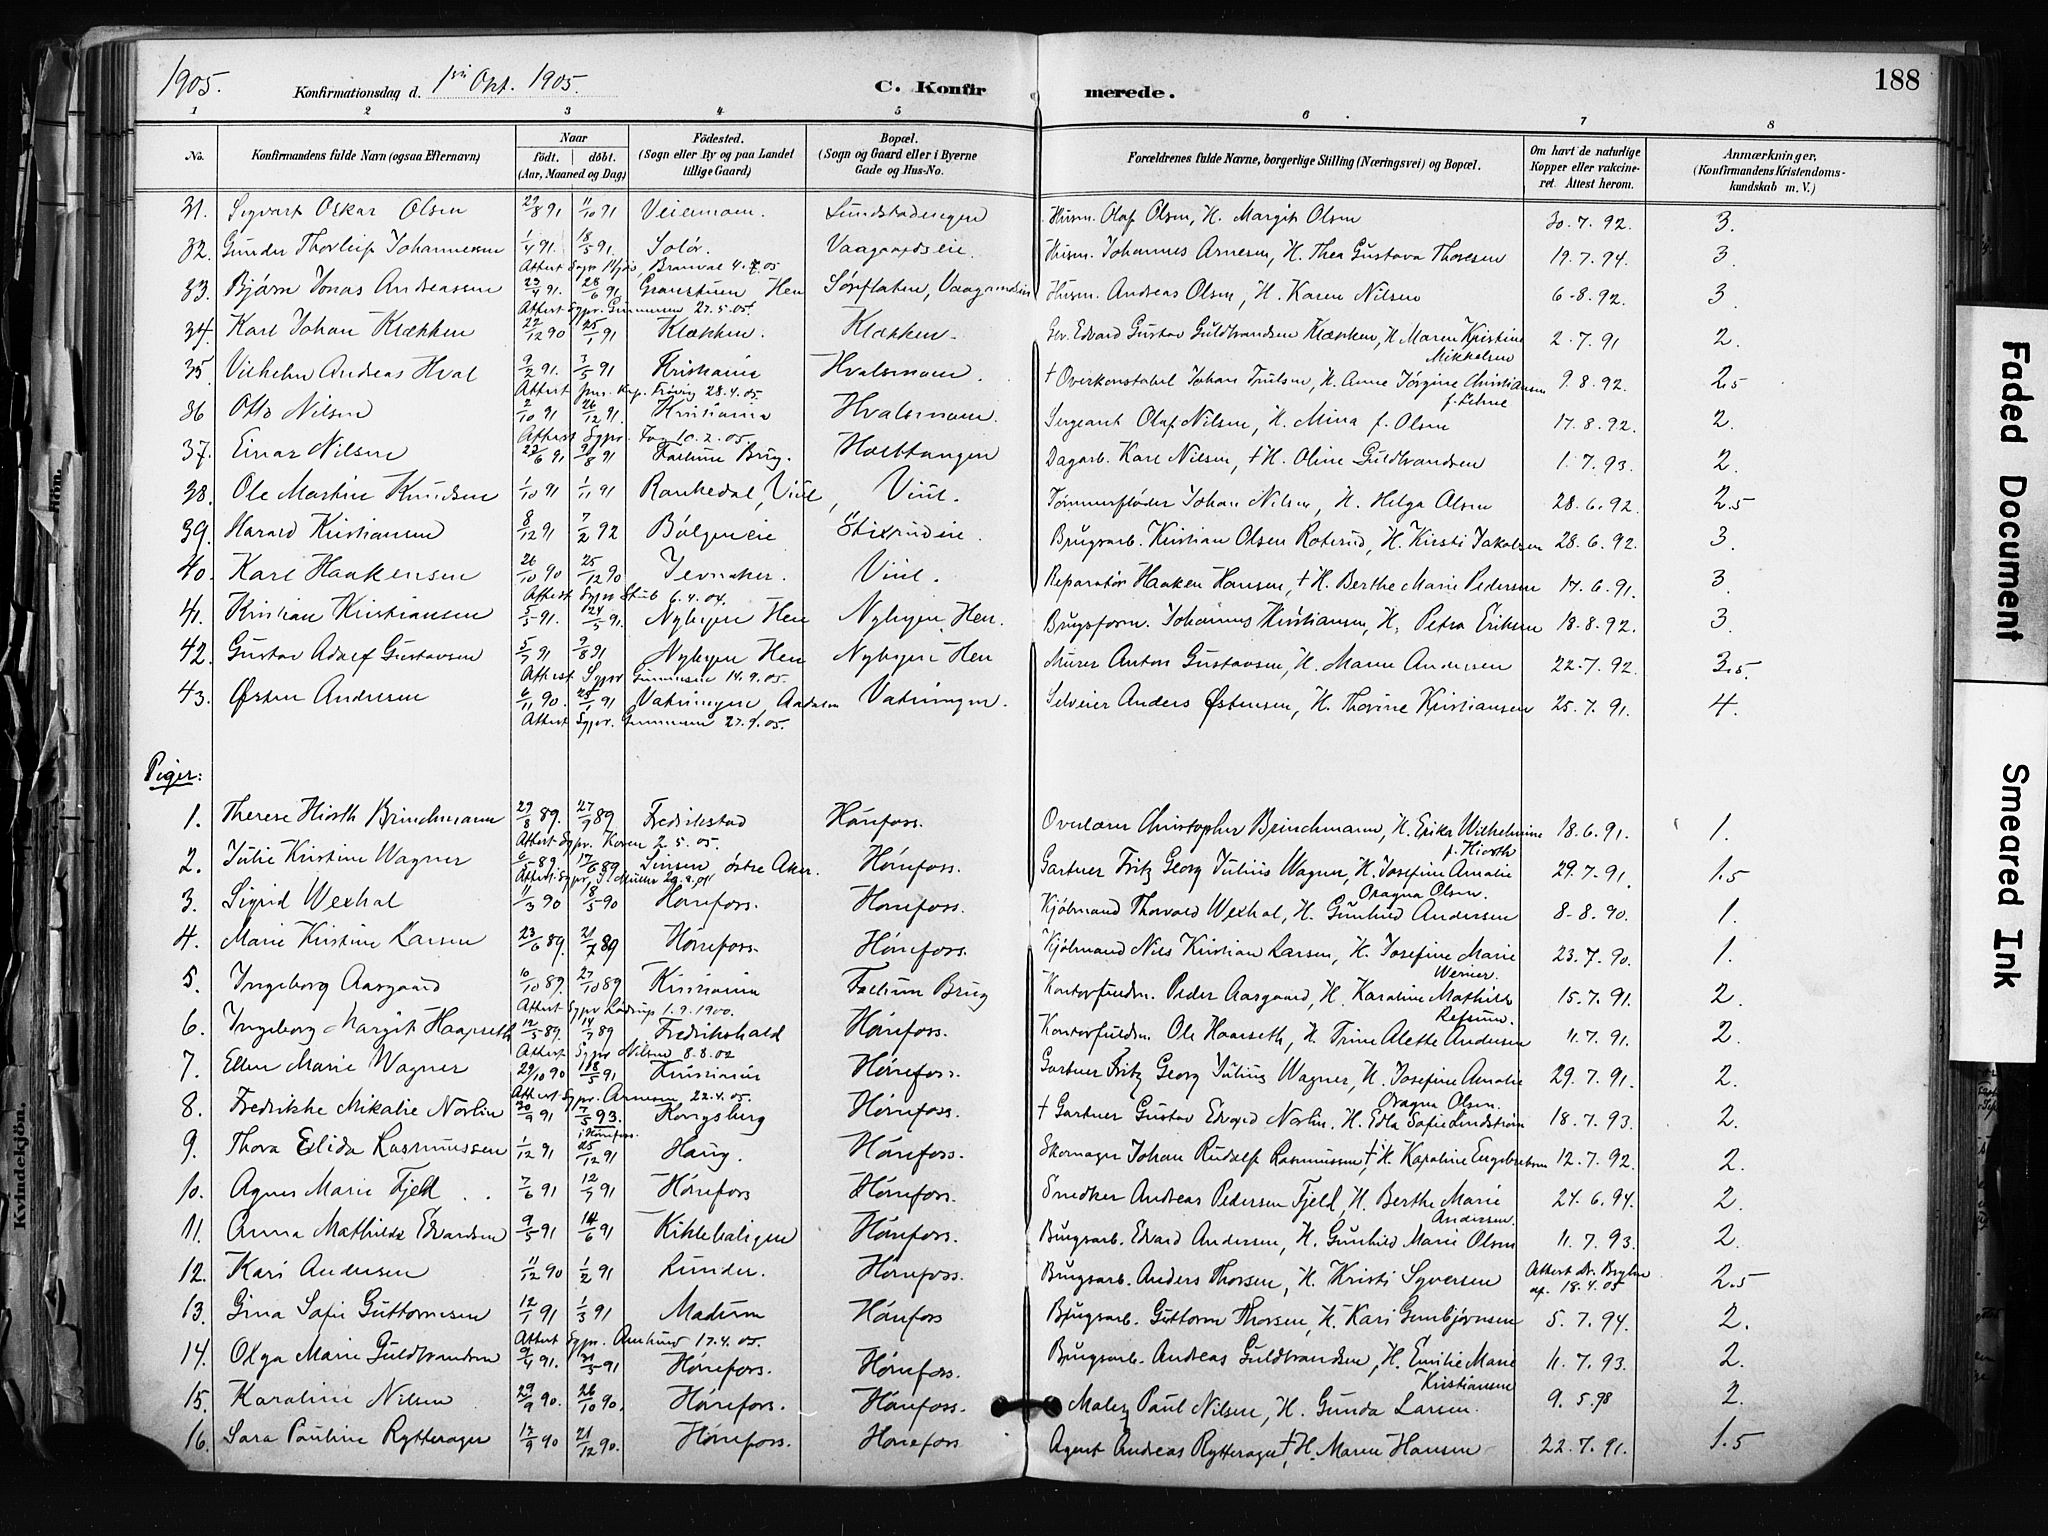 1905. Konfirmationsdag d. 1ste Okt. 1905. C. Konfirmerede. 188
1 2 3 4 5 6 7 8
No. Konfirmandens fulde Navn (ogsaa Efternavn) Naar födt. döbt. (Aar, Maaned og Dag) Födested. (Sogn eller By og paa Landet tillige Gaard) Bopæl. (Sogn og Gaard eller i Byerne Gade og Hus-No. Forældrenes fulde Navne, borgerlige Stilling (Næringsvei) og Bopæl. Om havt de naturlige Kopper eller vakcineret. Attest herom. Anmærkninger, (Konfirmandens Kristendomskundskab m. V.)
31. Sigvart Oskar Olsen 29/8 91 11/10 91 Veienmoen. Lundstadengen Husm. Olaf Olsen, H. Margit Olsen 30.7.92. 3.
32. Gunder Thorleif Johannesen 1/4 91. 18/5 91. Solör. Vaagaardseie Husm. Johannes Arnesen, H. Thea Gustava Thoresen 19.7.94. 3
Attest Sgpr. Branval 4.7.05
33. Bjarn Jonas Andreassen 23/4 91. 28/6 91. Granstuen Hen Sörflaten, Husm. Andreas Olsen, H. Karen Nilsen 6-8.92. 3.
Attest Sgpr. Gunnesen 27.5.05.
34. Karl Johan Klækken 22/12 90 25/1 91 Klækken. Klækken. Edvard Gustav Guldbrandsen Klækken, H. Maren Kristine Mikkelsen 2.7.91 2.
35. Vilhelm Andreas Hval 9/2 91. 3/5 91 Kristiania Hvalsmoen. † Overkonstabel Johan Trulsen, H. Anne Jörgine Christiansen f. Lehne 9.8.92. 2.5
Attest 28.4.05
36 Otto Nilsen 2/10 91 26/12 91. Kristiania Hvalsmoen. Sergeant Olaf Nilsen, H. Mina f. Olsen 17.8.92. 2.
Attest Sgpr. 10.2.05.
37. Einar Nilsen 23/6 91 9/8 91 Follum Brug. Hoelstangen Dagarb. Karl Nilsen, † H. Oline Guldbrandsen 1.7.93. 2.
38. Ole Martin Knudsen 1/10 91 1/11 91 Ramkedal, Viul, Viul. Tömmerfløder Johan Nilsen, H. Helga Olsen 28.6.92. 2.5
39. Harald Kristiansen 8/12 91 7/2 92 Bölgeneie Stixrudeie. Brugsarb. Kristian Olsen Roterud, H. Kirsti Jakobsen 28.6.92. 3.
40. Karl Haakensen 26/10 90 25/12 90 Jevnaker. Viul. Reparatör Haaken Hansen, † H. Berthe Marie Pedersen 17.6.91. 3.
Attest Sgpr Stub 6.4.04.
41. Kristian Kristiansen 5/5 91. 24/5 91. Nybyen Hen Nybyen, Hen. Brugsform. Johannes Kristiansen, H. Petra Eriksen 18.8.92. 3.
42. Gustav Adolf Gustavsen 5/7 91 9/8 91 Nybyen Hen Nybyen Hen Murer Anton Gustavsen, H. Maren Andersen 22.7.92. 3.5
Attest Sgpr Gunnesen 14.9.05.
43. Østen Andersen 6/11 90. 25/1 91 Vatningen, Aadalen Vatningen. Selveier Anders Østensen, H. Thorine Kristiansen 25.7.91. 4.
Attest Sgpr. Gunnesen 27.9.05.
Piger:
1. Therese Hiorth Brinchmann 29/8 89. 27/9 89. Fredrikstad Hönefoss. Overlærer Christopher Brinchmann, H. Erika Wilhelmine f. Hiorth 18.6.91. 1.
Attest Sgpr. Koren 2.5.05.
2. Julie Kristine Wagner 6/5 89. 17/6 89 Sinsen, östre Aker. Hønefoss. Gartner Fritz Georg Julius Wagner, H. Josefine Amalie Dragna Olsen. 29.7.91. 1.5
3. Sigrid Wexhal 11/3 90 18/5 90 Hønefoss. Hønefoss. Kjøbmand Thorvald Wexhal, H. Gunhild Andersen 8-8.90. 1.
4. Marie Kristine Larsen 23/6 89. 21/7 89 Hönefoss. Hönefoss. Kjøbmand Nils Kristian Larsen, H. Josefine Marie Werner. 23.7.90. 1.
5. Ingeborg Aasgaard 10/10 89. 27/10 89 Kristiania Follum Brug Kontorfuldm. Peder Aasgaard, H. Karoline Mathilde Refsum. 15.7.91. 2.
Attest Sgpr 1.9.1900.
6. Ingeborg Margit Haarseth 12/5 89. 14/7 89 Fredrikshald Hönefoss. Kontorfuldm. Ole Haarseth, H. Trine Alette Andersen 11.7.91. 2.
Attest Sgpr Nilsen 8.8.02
7. Ellen Marie Wagner 29/10 90 18/5 91 Kristiania Hönefoss. Gartner Fritz Georg Julius Wagner, H. Josefine Amalie Dragna Olsen. 29.7.91. 2.
Attest Sgpr. Arnesen 22.4.05.
8. Fredrikke Mikalie Norlin 30/9 91 7/5 93. i Hönefoss. Kongsberg Hönefoss. † Gartner Gustav Edvard Norlin. H. Edla Sofie Lindström 18.7.93. 2.
9. Thora Elida Rasmussen 1/12 91 25/12 91 Haug. Hönefoss. Skomager Johan Rudolf Rasmussen, † H. Karoline Engebretsen 12.7.92. 2.
10. Agnes Marie Fjeld 7/6 91 12/7 91 Hönefoss Hönefoss. Snedker Andreas Pedersen Fjeld, H. Berthe Marie Andersen. 24.6.94. 2.
11. Anna Mathilde Edvardsen 9/5 91 14/6 91 Kihlebaligen Hönefoss. Brugsarb. Edvard Andersen, H. Gunhild Marie Olsen 11.7.93. 2.
12. Kari Andersen 11/12 90 1/2 91 Lunder. Hönefoss. Brugsarb. Anders Thorsen, H. Kristi Syversen Attest Dr. af 18.4.05 2.5
13. Gina Sofie Guttormsen 12/1 91 1/3 91 Modum Hönefoss Brugsarb. Guttorm Thorsen, H. Kari Gunbjørnsen 5.7.94. 2.
Attest Sgpr. 17.4.05.
14. Olga Marie Guldbrandsen 9/4 91. 31/5 91 Hönefoss. Hönefoss. Brugsarb. Andreas Guldbrandsen, H. Emilie Marie Kristiansen 11.7.93. 2.
15. Karoline Nilsen 29/9 90. 26/10 90. Hönefoss. Hönefoss. Maler Paul Nilsen, H. Gunda Larsen. 9.5.98 2.
16. Sara Pauline Rytterager 12/9 90 21/12 90. Hönefoss. Hönefoss Agent Andreas Rytterager, † H. Maren Hansen 22.7.91. 1.5
Kvindekjön.
Faded Document
Smeared Ink